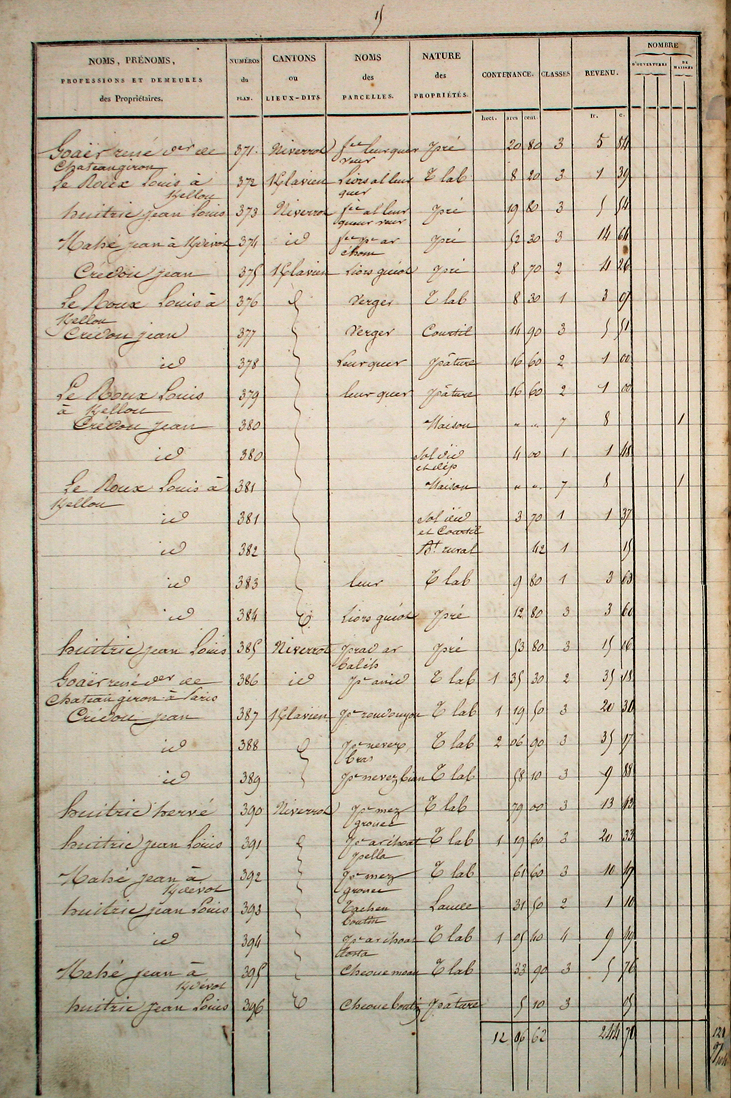 15
NOMS, PRÉNOMS, PROFESSIONS ET DEMEURES des Propriétaires. NUMÉROS du PLAN. CANTONS ou LIEUX-DITS NOMS des PARCELLES. NATURE des PROPRIÉTÉS. CONTENANCE. CLASSES REVENU. NOMBRE D'OUVERTURES DE MAISONS
hect. ares cent. fr. c.
Goaër rené der de 371 Niverrot leur quer pré 20 80 3 5 84
Chateaugiron
le Roux Louis à 372 Klavien Liors al leur T lab 8 20 3 1 39
Kellou quer
huitric jean Louis 373 Niverrot al leur pré 19 80 3 5 54
Mahé jean à Kdévot 374 id ar pré 52 30 3 14 64
Crédou jean 375 Klavien Liors guiot pré 8 70 2 4 26
Le Roux Louis à 376 Verger T lab 8 30 1 3 07
Kellou
Crédou jean 377 Verger Courtil 14 90 3 5 51
id 378 Leur quer pâture 16 60 2 1 00
Le Roux Louis 379 leur quer pâture 16 60 2 1 00
à Kellou
Crédou jean 380 Maison " " 7 8 1
id 380 Sol du 4 00 1 1 48
et dép
Le Roux Louis à 381 Maison " " 7 8 1
Kellou
id 381 Sol du 3 70 1 1 37
et Courtil
id 382 Bt rural 42 1 15
id 383 leur T lab 9 80 1 3 63
id 384 Liors guiot pré 12 80 3 3 60
huitric jean Louis 385 Niverrot prad ar pré 53 80 3 15 16
balih
Goaër rené der de 386 id T lab 1 35 30 2 35 18
Chateaugiron à Paris
Crédou jean 387 Klavien T lab 1 19 50 3 20 30
id 388 pc nevez T lab 2 06 90 3 35 17
bras
id 389 pc nevez bian T lab 58 10 3 9 88
huitric hervé 390 Niverrot pc mez T lab 79 00 3 13 42
grouec
huitric jean Louis 391 pc ar choat T lab 1 19 60 3 20 33
pella
Mahé jean à 392 pc mez T lab 61 60 3 10 47
Kdévot grouec
huitric jean Louis 393 Lande 31 50 2 1 10
id 394 pc ar choat T lab 1 05 40 4 9 49
tosta
Mahé jean à 395 Cheoue T lab 33 90 3 5 76
Kdévot
huitric jean Louis 396 Cheoue pâture 5 10 3 15
12 06 62 244 70